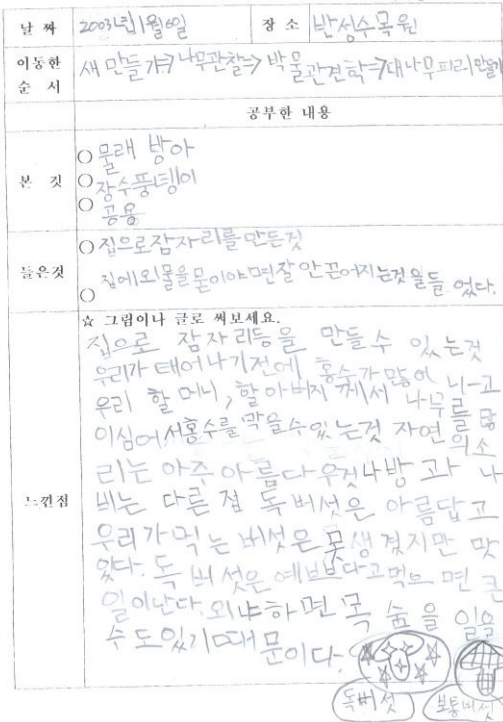 날 짜 2003년 11월 6일 장 소 반성수목원
이동한 순 서 새 만들기⇒나무관찰⇒박물관견학⇒대나무피리만들기
공부한 내용
본 것
○물래 방아
○장수풍뎅이
○공용
들은것
○집으로잠자리를만든것
○집에외물을묻이야면잘안끈어지는것을들었다.
느낀점
☆ 그림이나 글로 써보세요.
집으로 잠자리등을 만들수 있는것
우리가 태어나기전에 홍수가많이 나고
우리 할머니, 할아버지께서 나무를 많
이심어서홍수를막을수있는것 자연의소
리는 아주아름다우것나방 과 나
비는 다른점 독버섯은 아름답고
우리가먹는버섯은못생겼지만 맛
있다.독버섯은예쁘다고먹으면큰
일이난다.외냐하면목숨을 잃을
수도있기때문이다.
독버섯
보통버섯